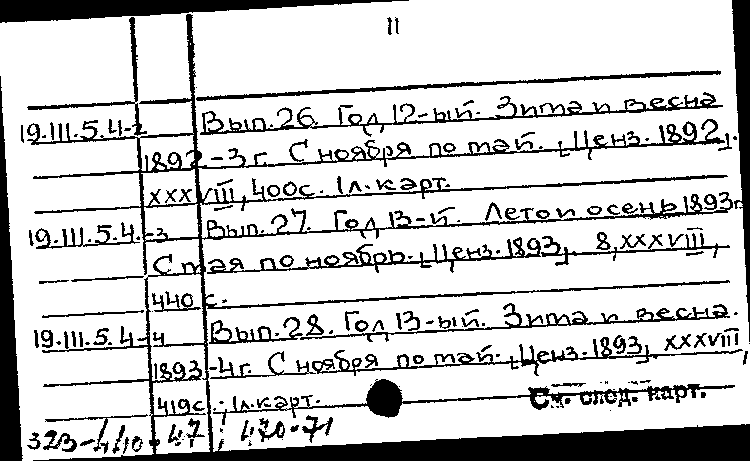 II
19.III.5.4-2 Вып. 26. Год 12-ый. Зима и весна
1892-3 г. С ноября по май. [Ценз. 1892].
XXXVIII, 400 с. 1 л. карт.
19.III.5.4.-3 Вып. 27. Год 13-й. Лето и осень 1893 г.
С мая по ноябрь. [Ценз. 1893]. 8, XXXVIII,
440 с.
19.III.5.4-4 Вып. 28. Год 13-ый. Зима и весна.
1893-4 г. С ноября по май. [Ценз. 1893]. XXXVIII,
419 с.; 1 л. карт.
См. след. карт.
47; 470-71